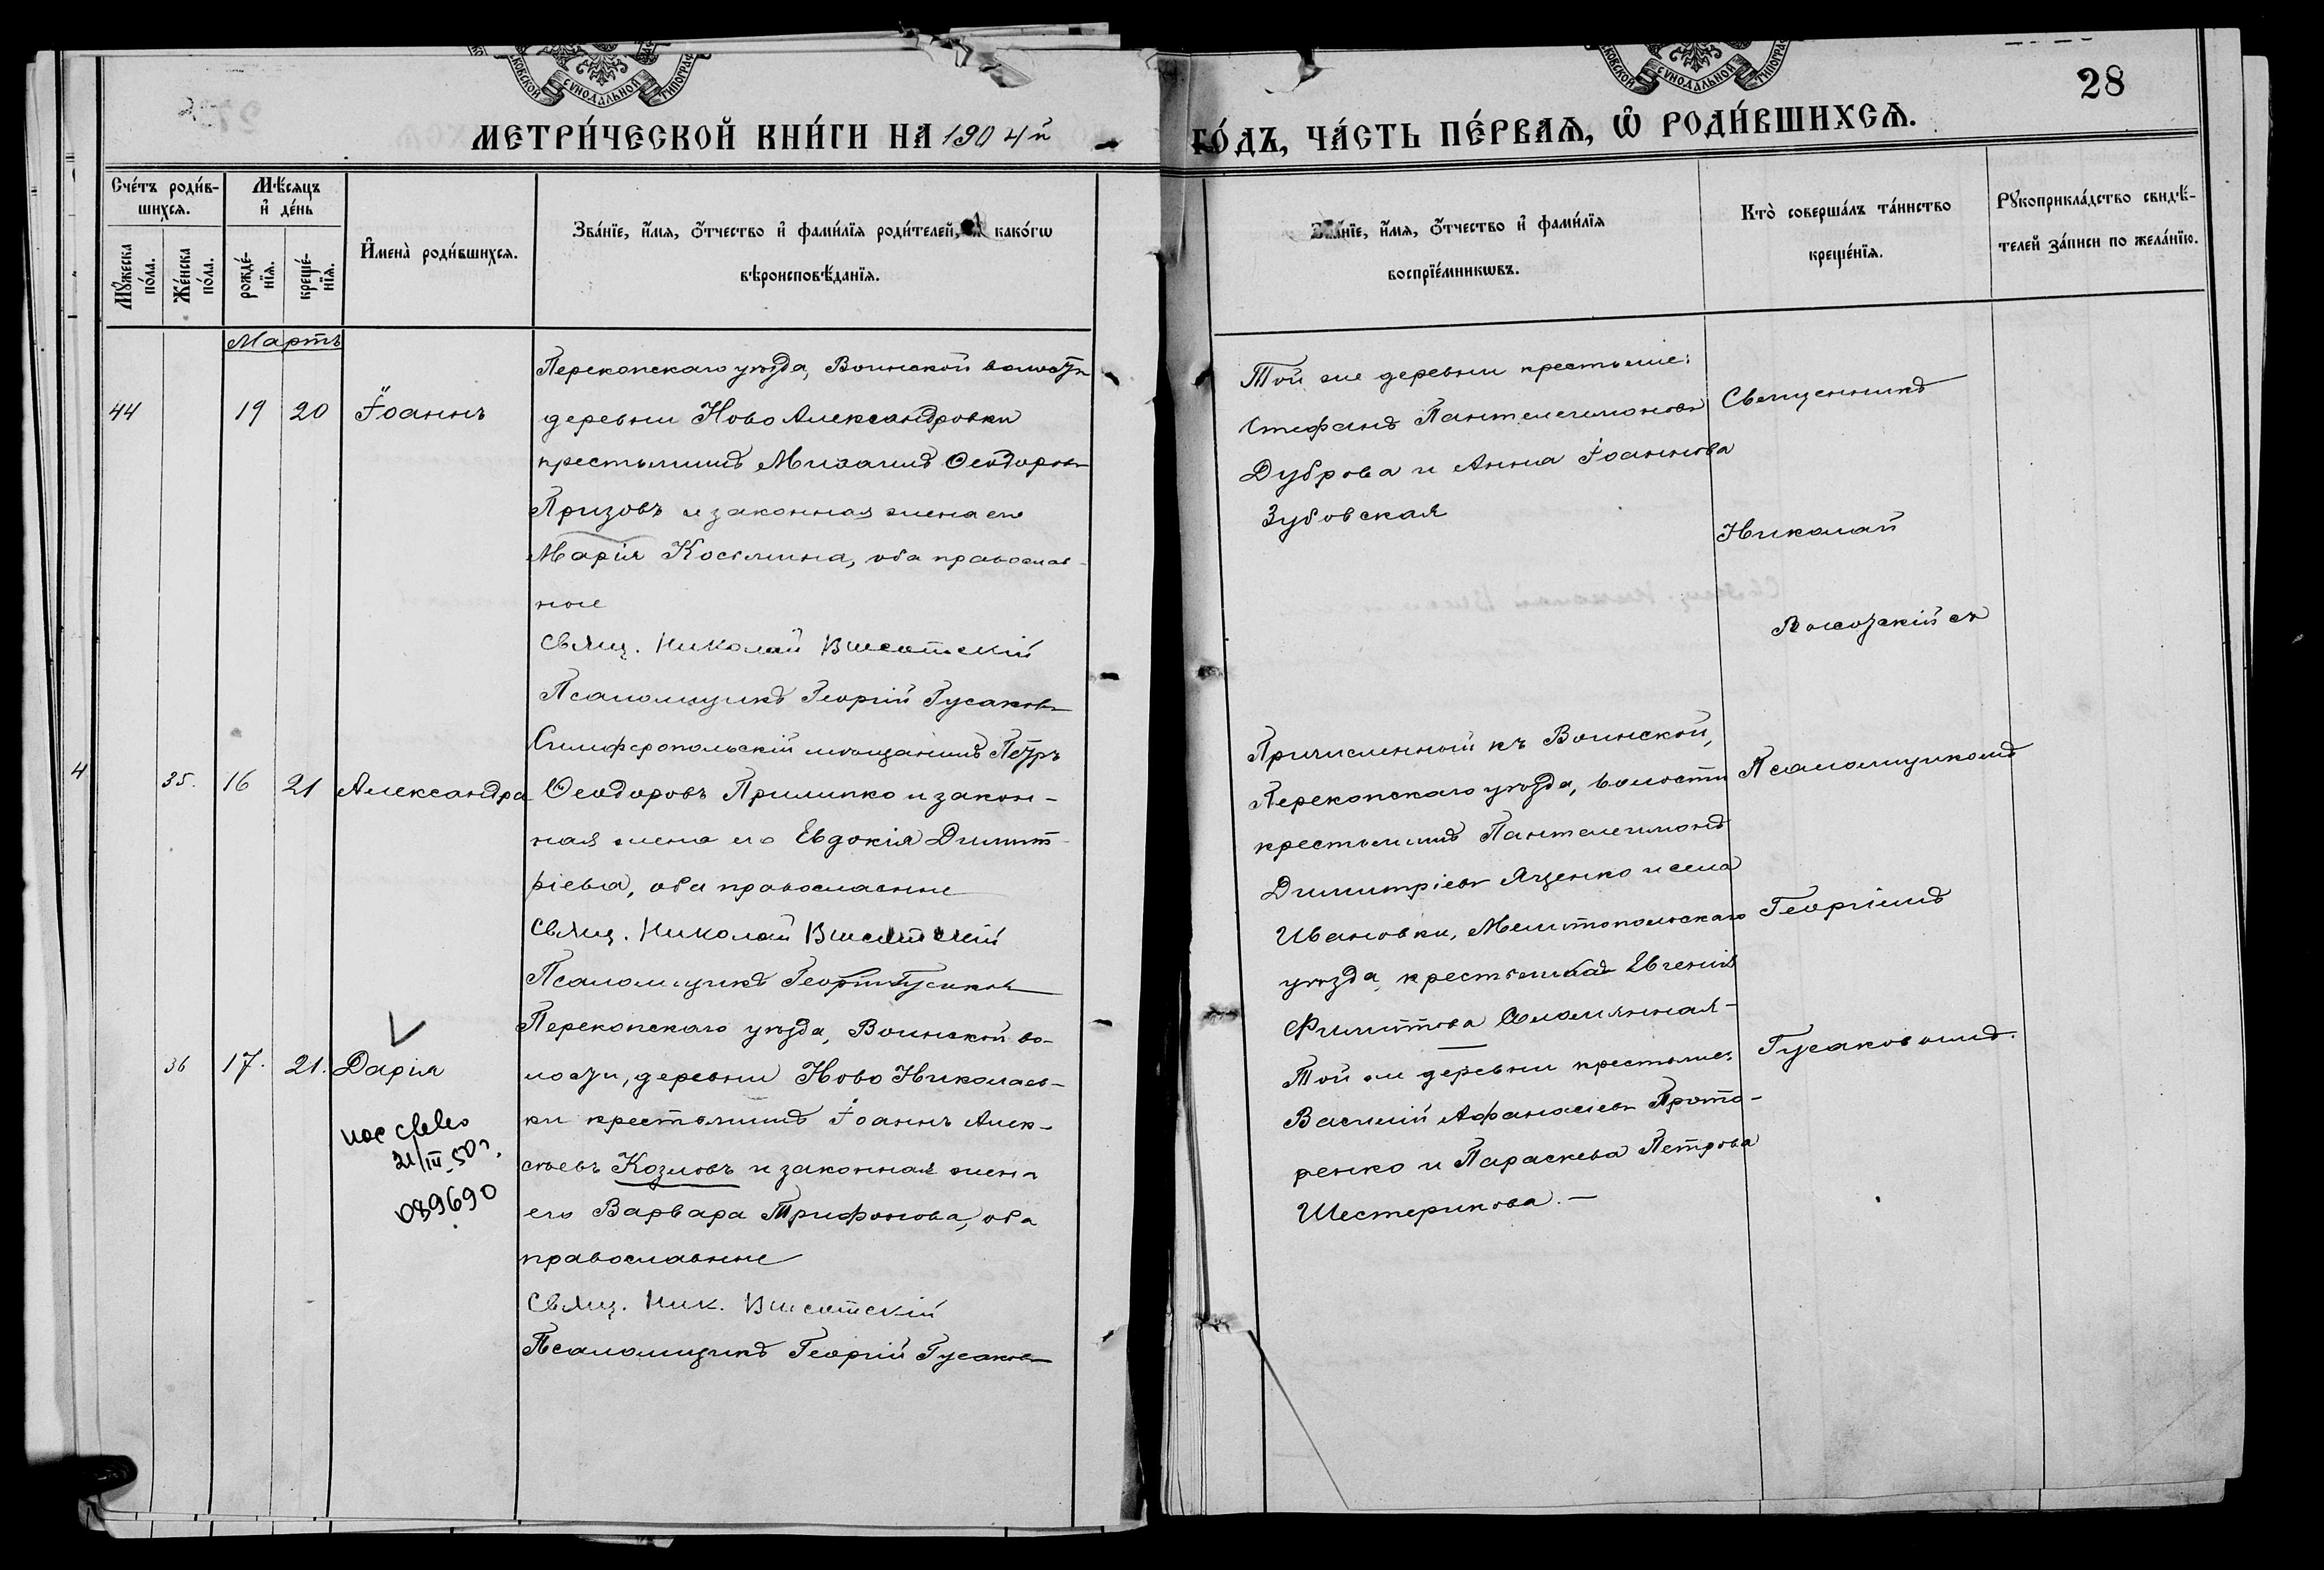 МЕТРИ́ЧЕСКОЙ КНИ́ГИ НА 1904й
ГО́ДЪ, ЧА́СТЬ ПЕ́РВАѦ, Ѡ҆ РОДИ́ВШИХСѦ.
28
Сче́тъ роди́в-
шихсѧ.
Мѣ́сяцъ
и҆ де́нь
Мꙋ́жеска по́ла.
Же́нска по́ла.
рожде́-
нїѧ.
креще́-
нїѧ.
И҆мена̀ роди́вшихсѧ.
Зва́нїе, и҆́мѧ, ѻ҆́тчество и҆ фами́лїѧ роди́телей, и҆ како́гѡ
вѣроисповѣ́данїѧ.
Зва́нїе, и҆́мѧ, ѻ҆́тчество и҆ фами́лїѧ
воспрїе́мникѡвъ.
Кто̀ соверша́лъ та́инство
креще́нїѧ.
Рꙋкоприкла́дство свидѣ́-
телей за́писи по жела́нїю.
Мартъ
44
19
20
Іоаннъ
Перекопскаго уѣзда, Воинской волости
деревни Ново Александровки
крестьянинъ Феодоровъ
Призовъ и законная жена его
Марія Косьмина, оба православ-
ные
Свящ. Николай Высотскій
Псаломщикъ Георгій Гусаковъ
Той же деревни крестьяне:
Стефанъ Пантелеимоновъ
Дуброва и Анна Іоаннова
Зубовская
Священникъ
Николай
Высотскій съ
4
35.
16
21
Александра
Симферопольскій мѣщанинъ Петръ
Феодоровъ Прилипко и закон-
ная жена его Евдокія Димит-
ріева, оба православные
Свящ. Николай Высотскій
Псаломщикъ Георгій Гусаковъ
Причисленный къ Воинской,
Перекопскаго уѣзда, волости
крестьянинъ Пантелеимонъ
Димитріевъ Яценко и села
Ивановки, Мелитопольскаго
уѣзда, крестьянка Евгенія
Филиппова
Псаломщикомъ
Георгіемъ
Гусаковымъ.
36
17.
21.
Дарія
21/III 50 г.
089690
Перекопскаго уѣзда, Воинской во-
лости, деревни Ново Николаев-
ки крестьянинъ Іоаннъ Алек-
сѣевъ Козловъ и законная жена
его Варвара Трифонова, оба
православные
Свящ. Ник. Высотскій
Псаломщикъ Георгій Гусаковъ
Той же деревни крестьяне:
Василій Афанасіевъ Прото-
ренко и Параскева Петрова
Шестерикова. —